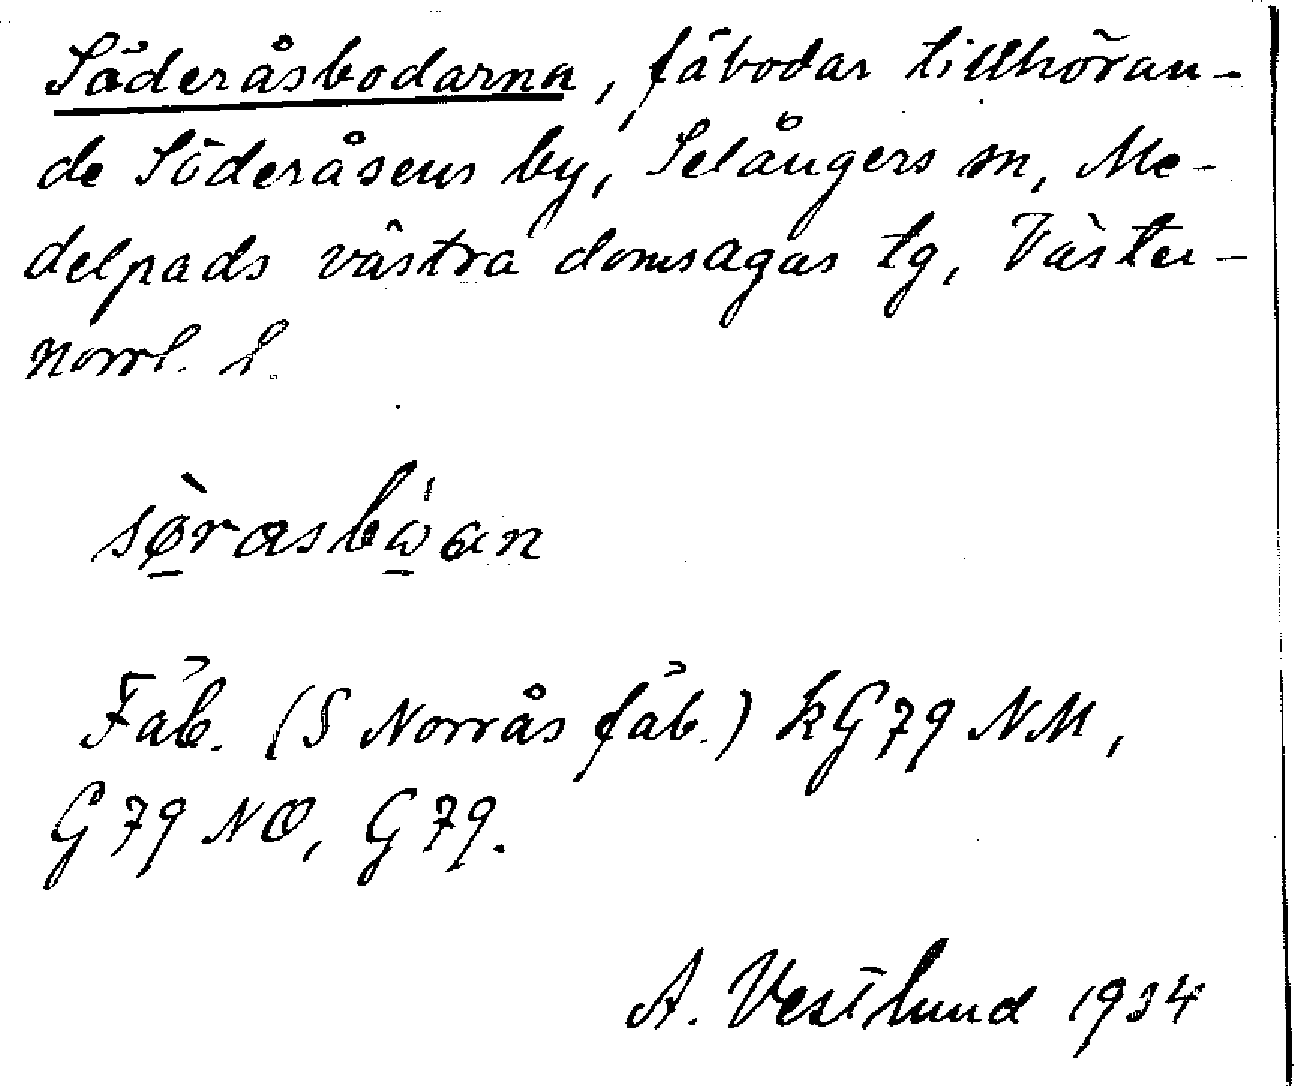 Söderåsbodarna, fäbodar tillhöran-
de Söderåsens by, Selångers sn, Me-
delpads västra domsagas tg, Väster-
norrl. l.
sø̱̀rasbω̱̍an
Fäb. (S Norrås fäb.) kG79 NM,
G79 NO, G79.
A. Vestlund 1934